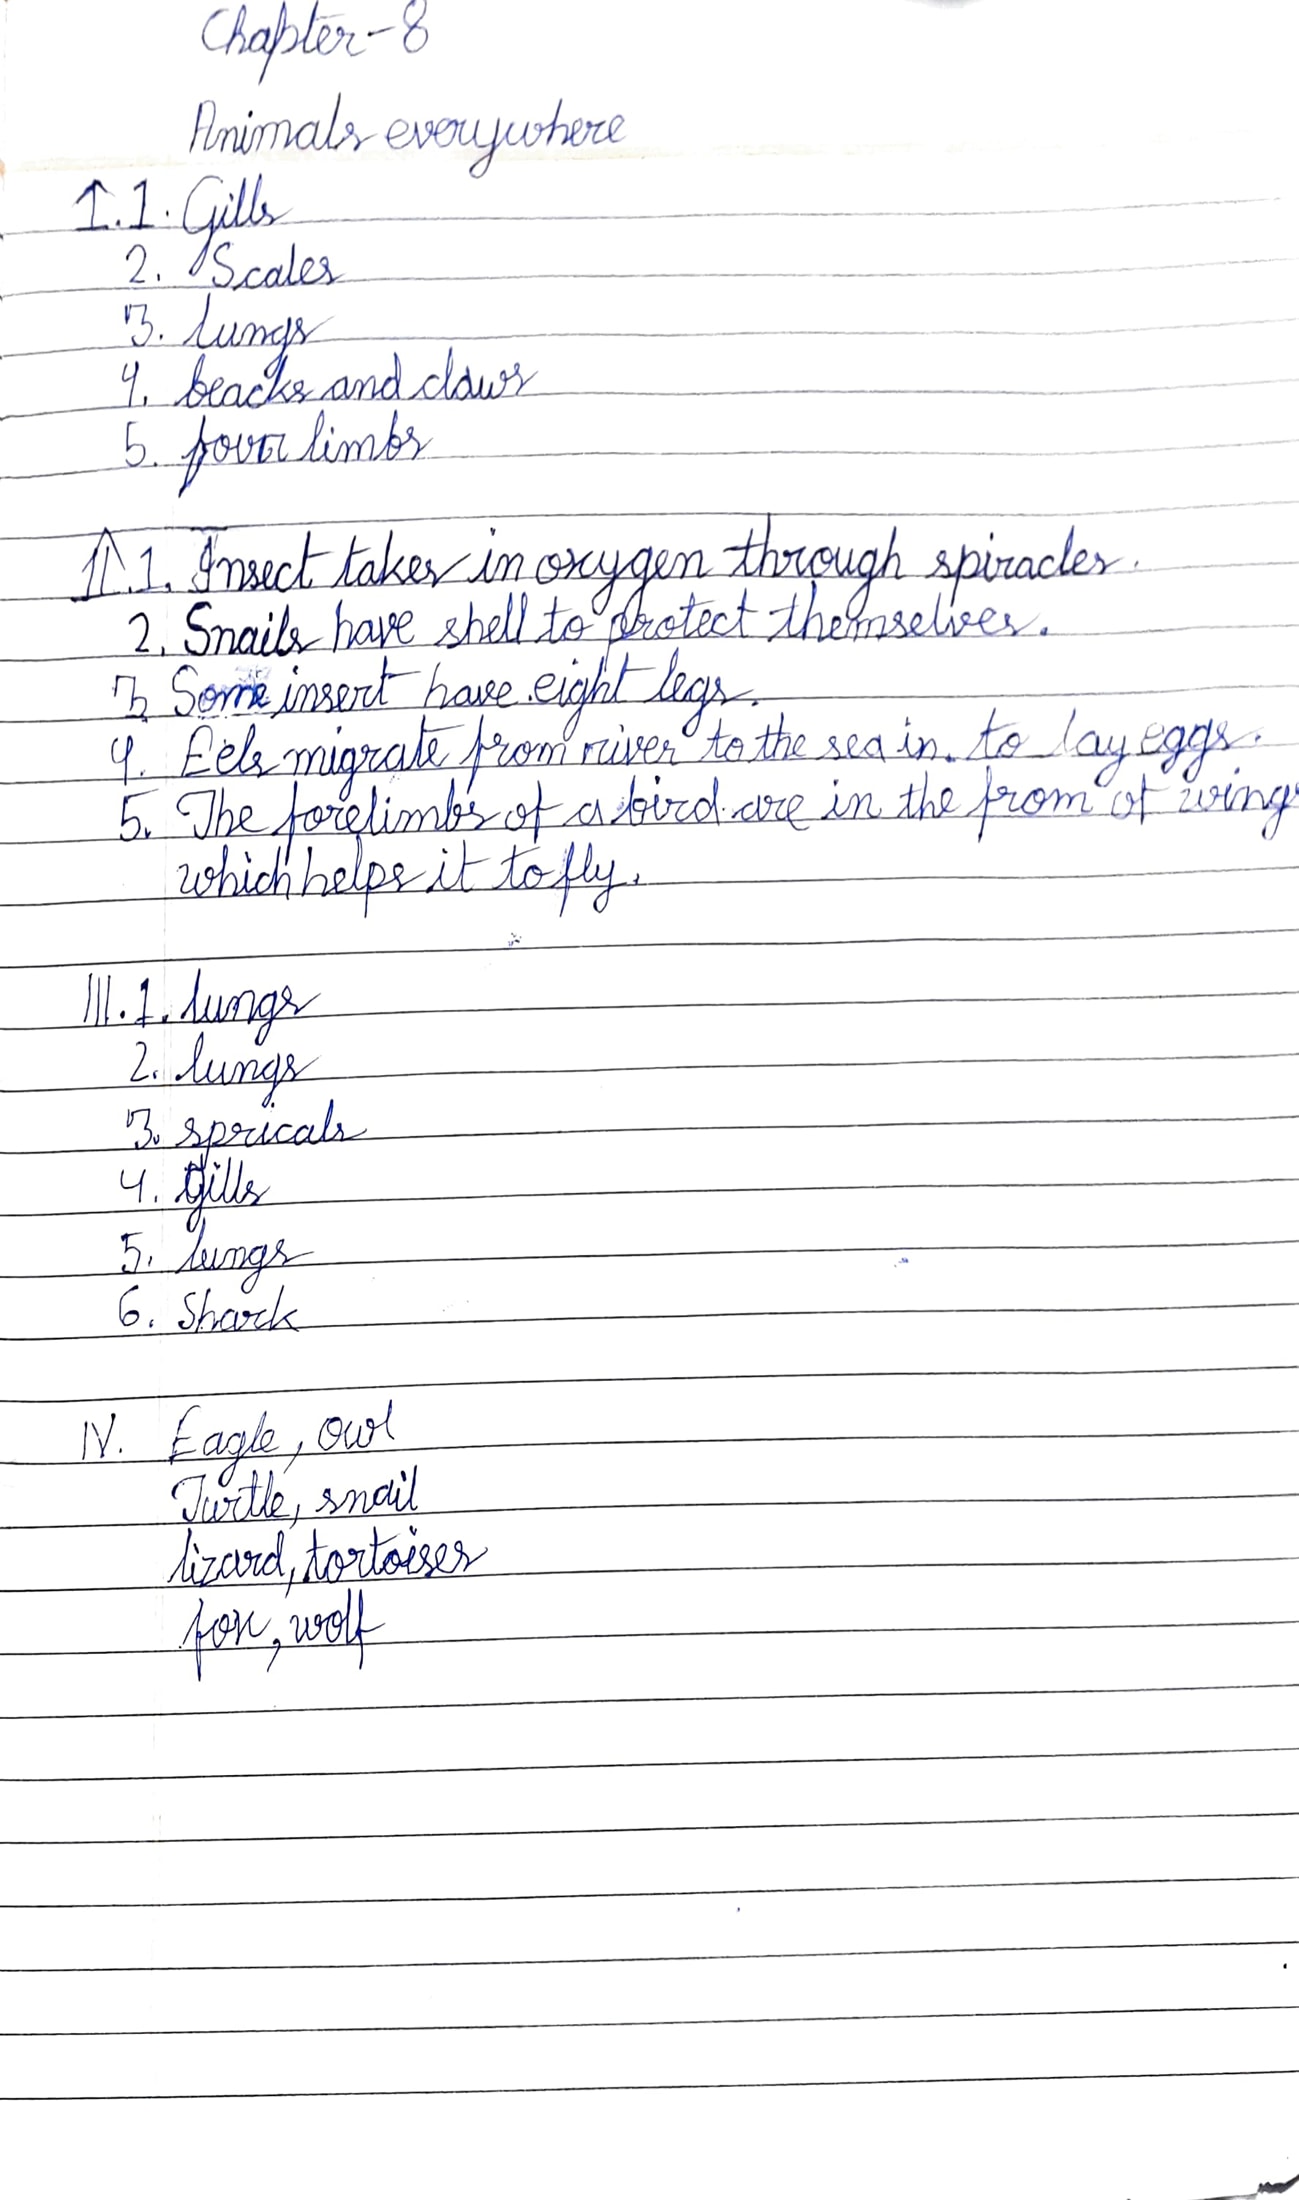 Chapter-8
Animals everywhere
I.1. Gills
2. Scales
3. lungs
4. beacks and claws
5. four limbs
II 1. Insect takes in oxygen through spiracles.
2. Snails have shell to protect themselves.
3. Some insert have eight legs.
4. Eels migrate from river to the sea in. to lay eggs.
5. The forelimbs of a bird are in the from of wings
which helps it to fly.
III.1. lungs
2. lungs
3. spricals
4. gills
5. lungs
6. Shark
IV. Eagle, owl
Turtle, snail
lizard, tortoises
fox, wolf